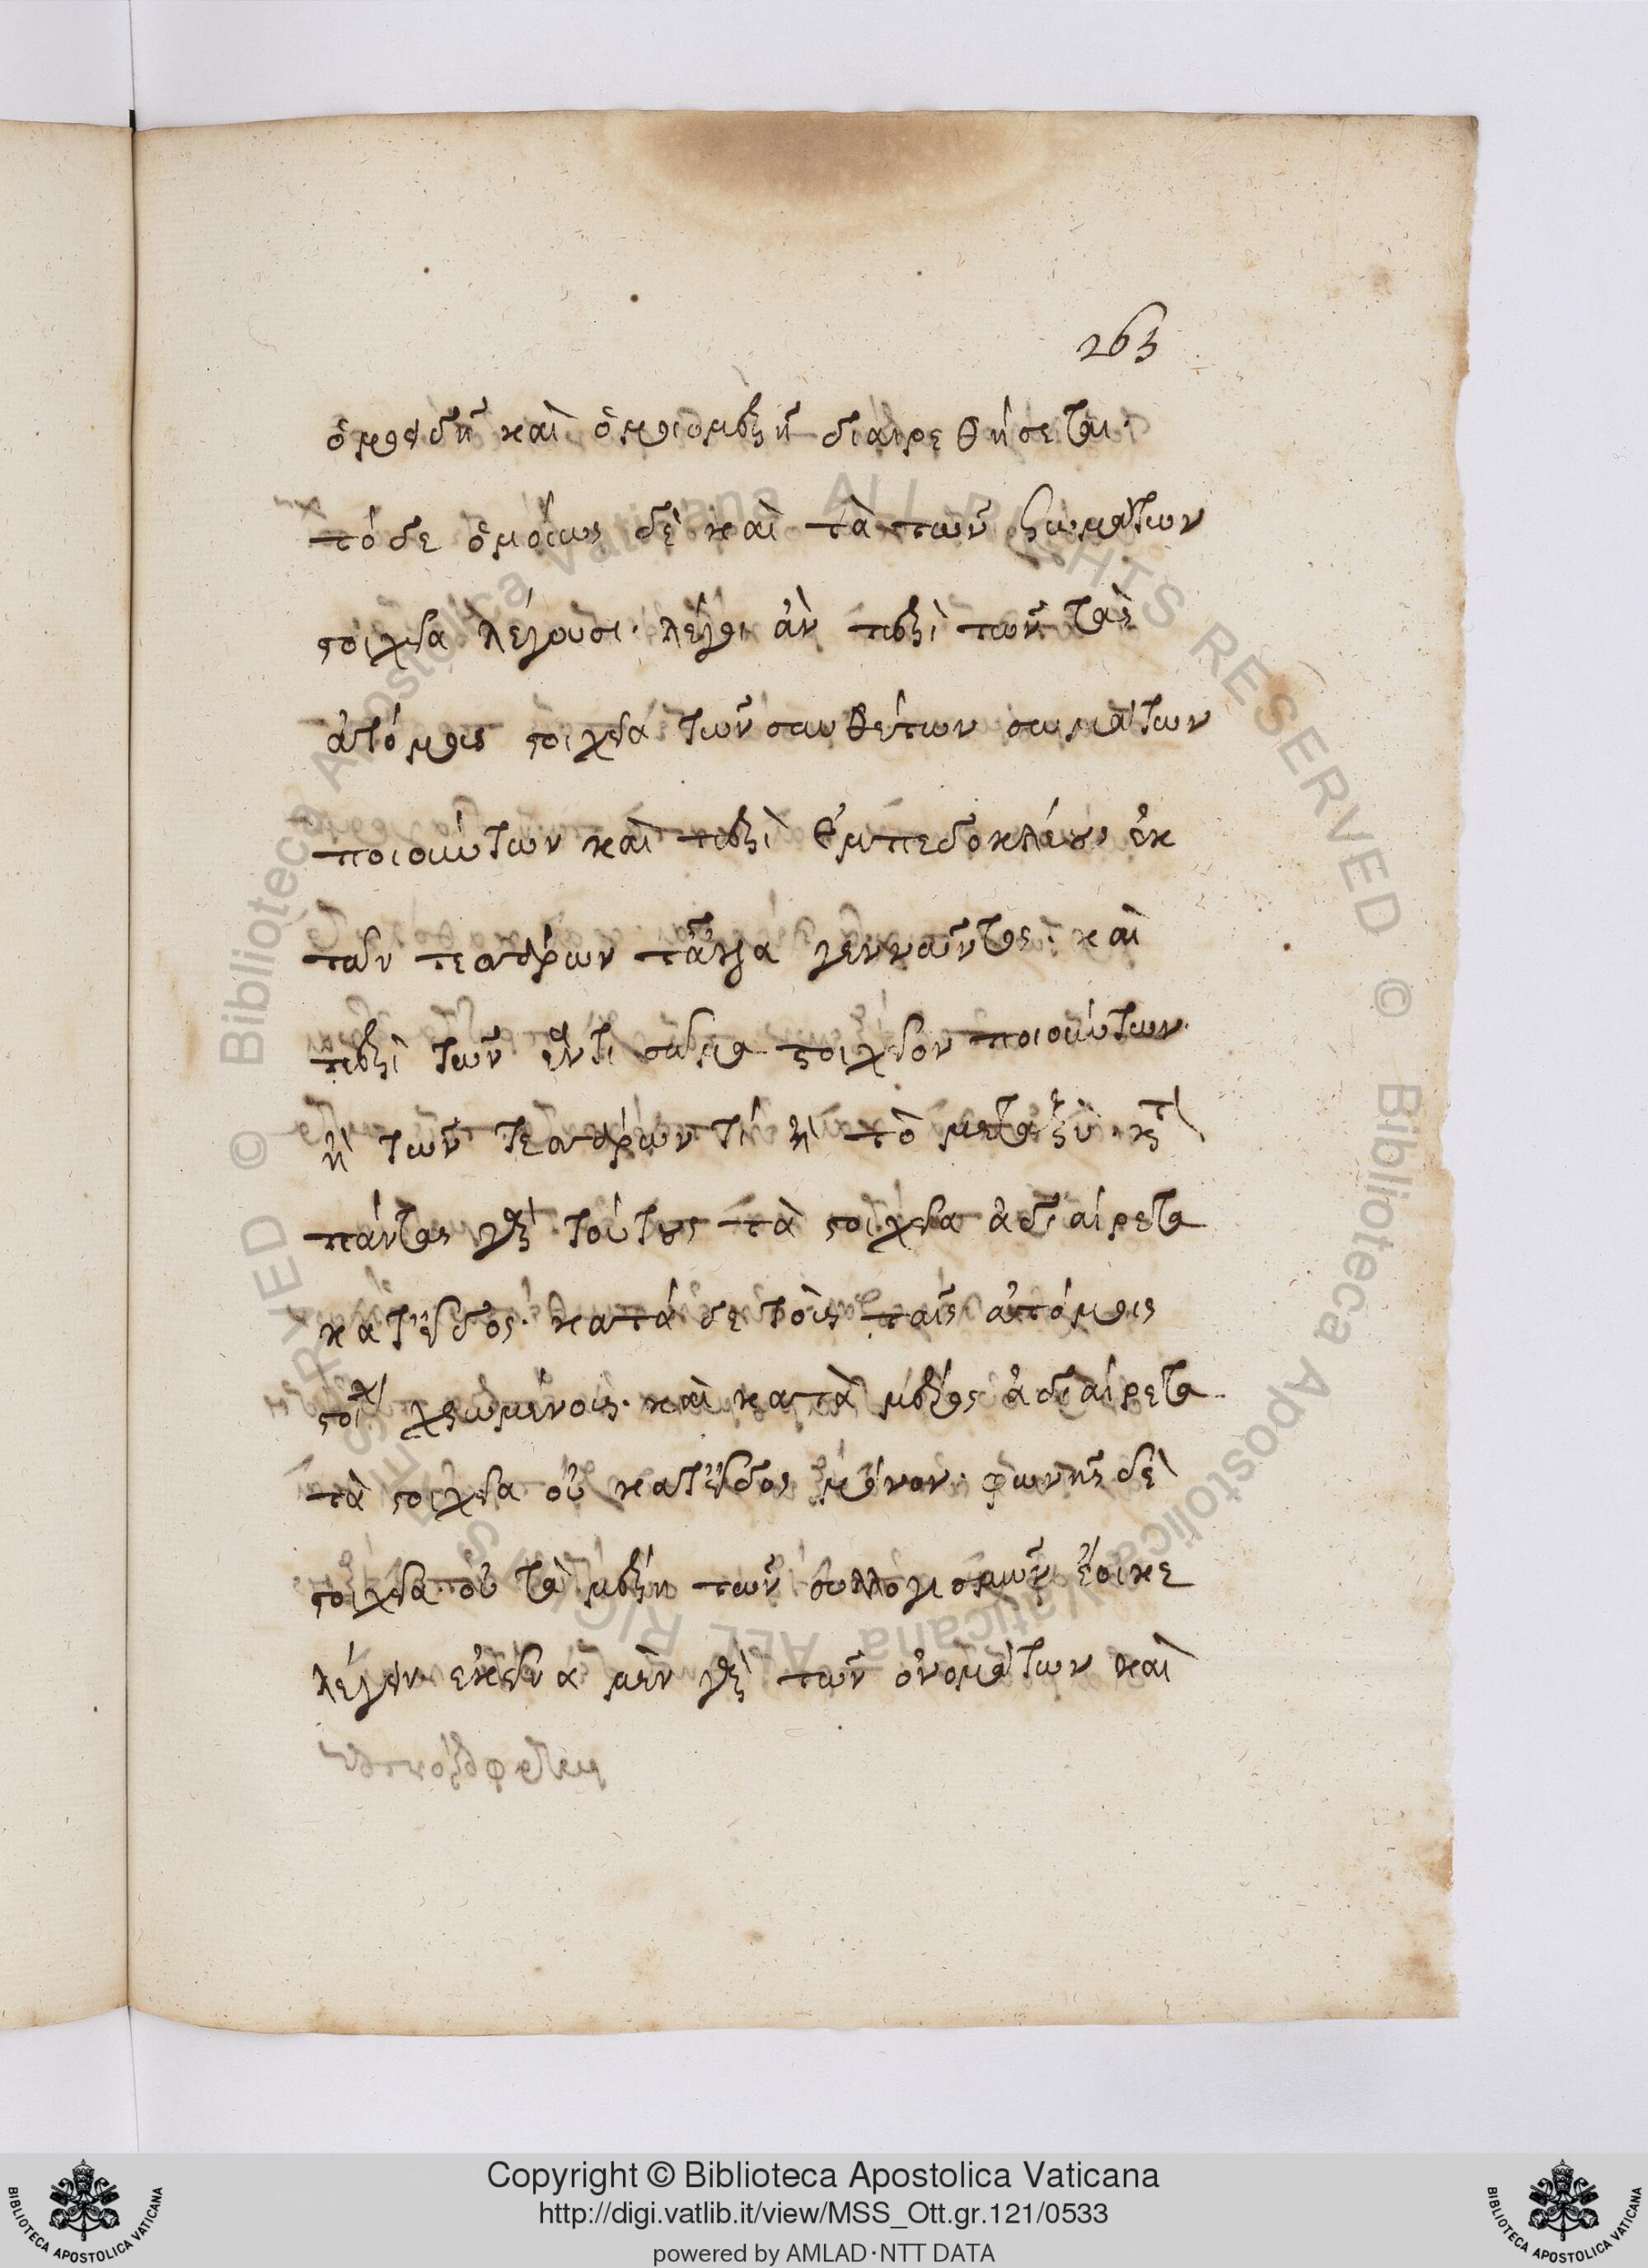 263
ὁμοειδῆ καὶ ὁμοιομερῆ διαιρεθήσεται·
τόδε ὁμοίως δὲ καὶ τὰ τῶν σωμάτων
στοιχεῖα λέγουσι· λέγοι ἂν περὶ τῶν τὰς
ἀτόμους στοιχεῖα τῶν συνθέτων σωμάτων
ποιούντων καὶ περὶ ἐμπεδοκλέους ἐκ
τῶν τεσσάρων πάντα γεννῶντος· καὶ
περὶ τῶν ἕν τι σῶμα στοιχεῖον ποιούντων·
ἢ τῶν τεσσάρων τί ἢ τὸ μεταξύ· κατὰ
πάντας γὰρ τούτους τὰ στοιχεῖα ἀδιαίρετα
κατ' εἶδος· κατὰ δὲ τοῖς ταῖς ἀτόμοις
στοιχ χρωμένοις· καὶ κατὰ μέρος ἀδιαίρετα
τὰ στοιχεῖα οὐ κατ' εἶδος μόνον· φωνῆς δὲ
στοιχεῖα οὐ τὰ μέρη τῶν συλλογισμῶν ἔοικε
λέγειν ἐκεῖνα μὲν γὰρ τῶν ὀνομάτων καὶ
Copyright © Biblioteca Apostolica Vaticana
http://digi.vatlib.it/view/MSS_Ott.gr.121/0533
powered by AMLAD·NTT DATA
BIBLIOTECA APOSTOLICA VATICANA
BIBLIOTECA APOSTOLICA VATICANA
© Biblioteca Apostolica Vaticana ALL RIGHTS RESERVED © Biblioteca Apostolica Vaticana ALL RIGHTS RESERVED